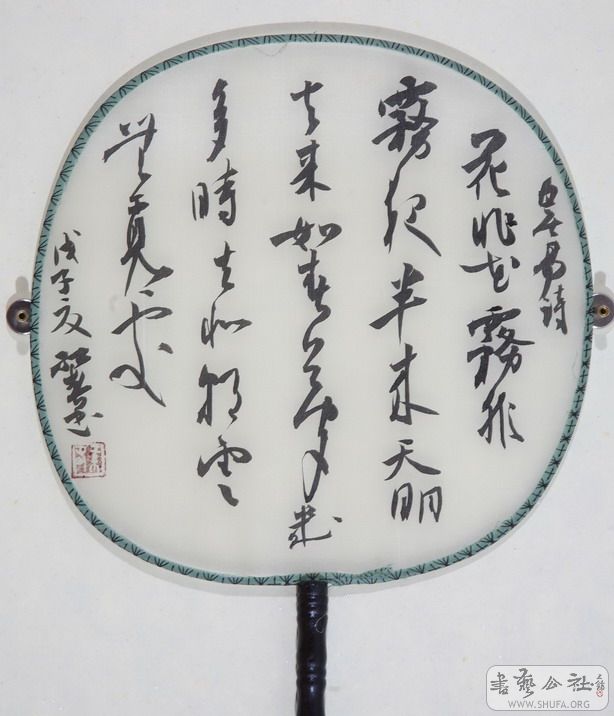 白居易詩
花非花霧非
霧夜半来天明
去来如春夢幾
多時去似朝雲
無覓處
戊子夏 書
書藝公社
WWW.SHUFA.ORG